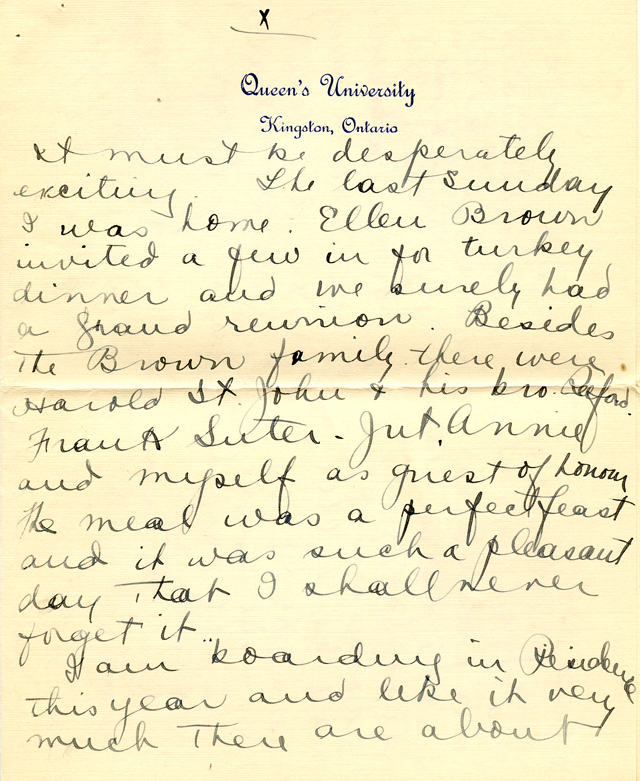 x
Queen's University
Kingston, Ontario
It must be desperately
exciting. The last Sunday
I was home. Ellen Brown
invited a few in for turkey
dinner and we surely had
a grand reunion. Besides
the Brown family there were
Harold St. John & his bro.
Frank Suter - Jut. Annie
and myself as guest of honour
The meal was a perfect feast
and it was such a pleasant
day that I shall never
forget it.
I am boarding in Residence
this year and like it very
much There are about